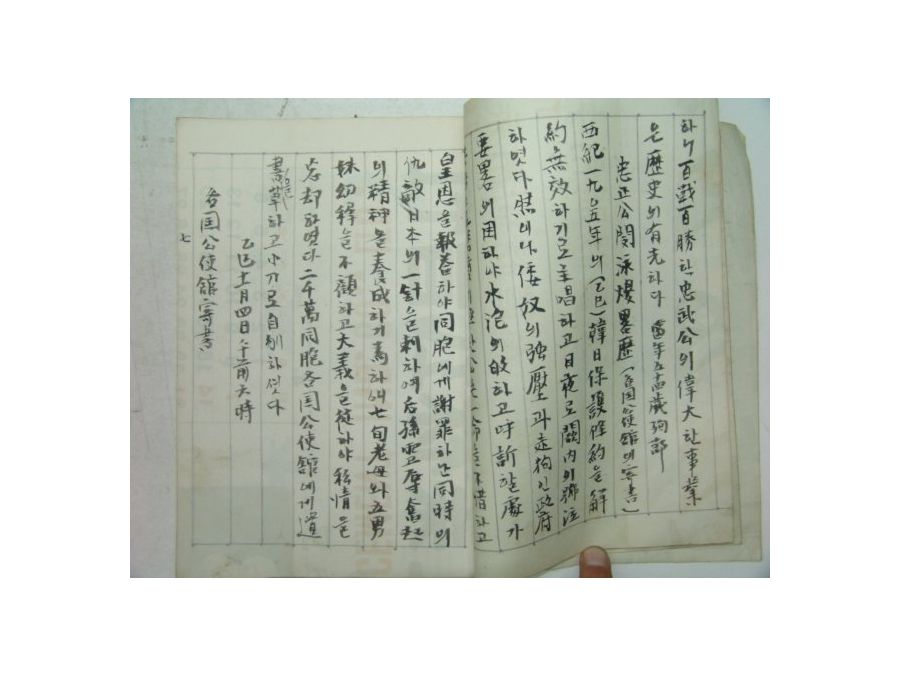 하니 百戰百勝한 忠武公의 偉大한 事業
은 歷史의 有光하다 當年五十四歲殉節
忠正公閔泳煥畧歷(各国公使館의 寄書)
西紀一九〇五年의(乙巳)韓日保護條約을 解
約을 無效하기로 主唱하고 日夜로 闕内의 號泣
하엿다 然의나 倭奴의 强壓과 走狗인 政府
要畧의 因하야 水泡의 歸하고 呼訴할 處가
皇恩을 報答하야 同胞에게 謝罪하난 同時의
仇敵 日本의 一針을 刺하여 后孫雪辱奮起
의 精神을 養成하기 爲하니 七旬老母와 五男
妹幼穉을 不顧하고 大義을 從하야 私情을
忘却하엿다 二千萬同胞 各国公使館에게 遺
書을 草하고 小刀로 自刎하섯다
乙巳十一月四日 午前六時
各国公使館寄書
七